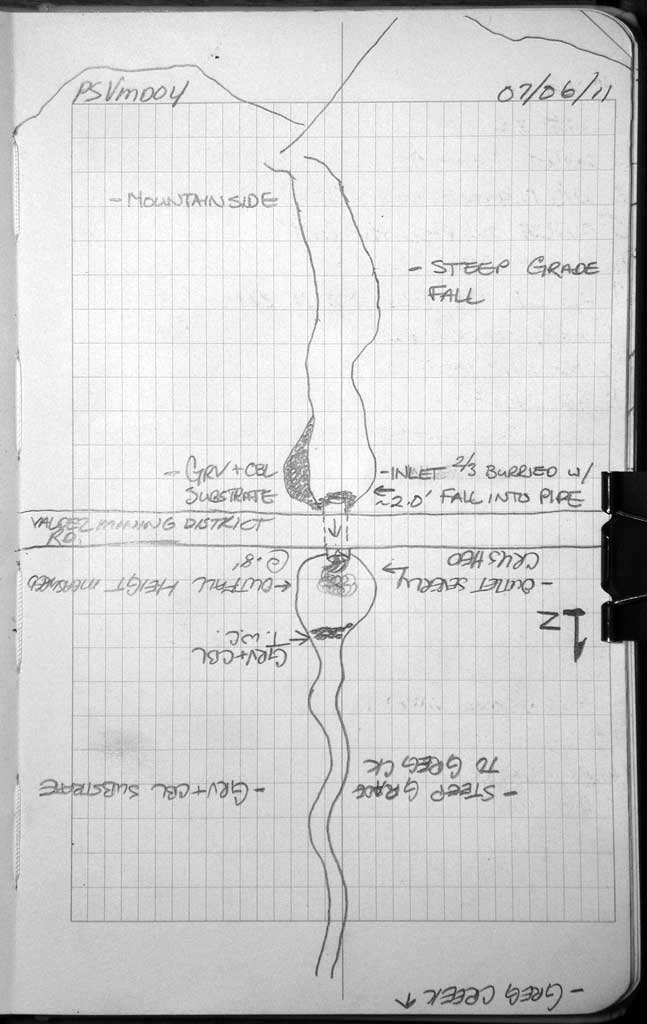 PSVMD04
07/06/11
- MOUNTAINSIDE
- STEEP GRADE
FALL
- GRV + CBL
SUBSTRATE
- INLET 2/3 BURRIED W/
← ~2.0' FALL INTO PIPE
VALDEZ MINING DISTRICT
RD.
- OUTLET SEVERLY
CRUSHED
- OUTFALL HEIGT MEASURED
@ .8'
N
GRV+CBL
T.W.C.
- STEEP GRADE
TO GREG CK
- GRV+CBL SUBSTRATE
- GREG CREEK